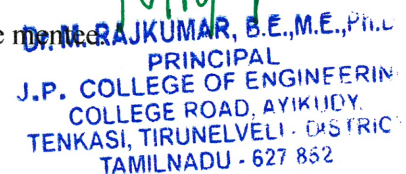 e mentee.
Dr. M. RAJKUMAR, B.E.,M.E.,Ph.D
PRINCIPAL
J.P. COLLEGE OF ENGINEERIN
COLLEGE ROAD, AYIKUDY,
TENKASI, TIRUNELVELI - DISTRIC
TAMILNADU - 627 852